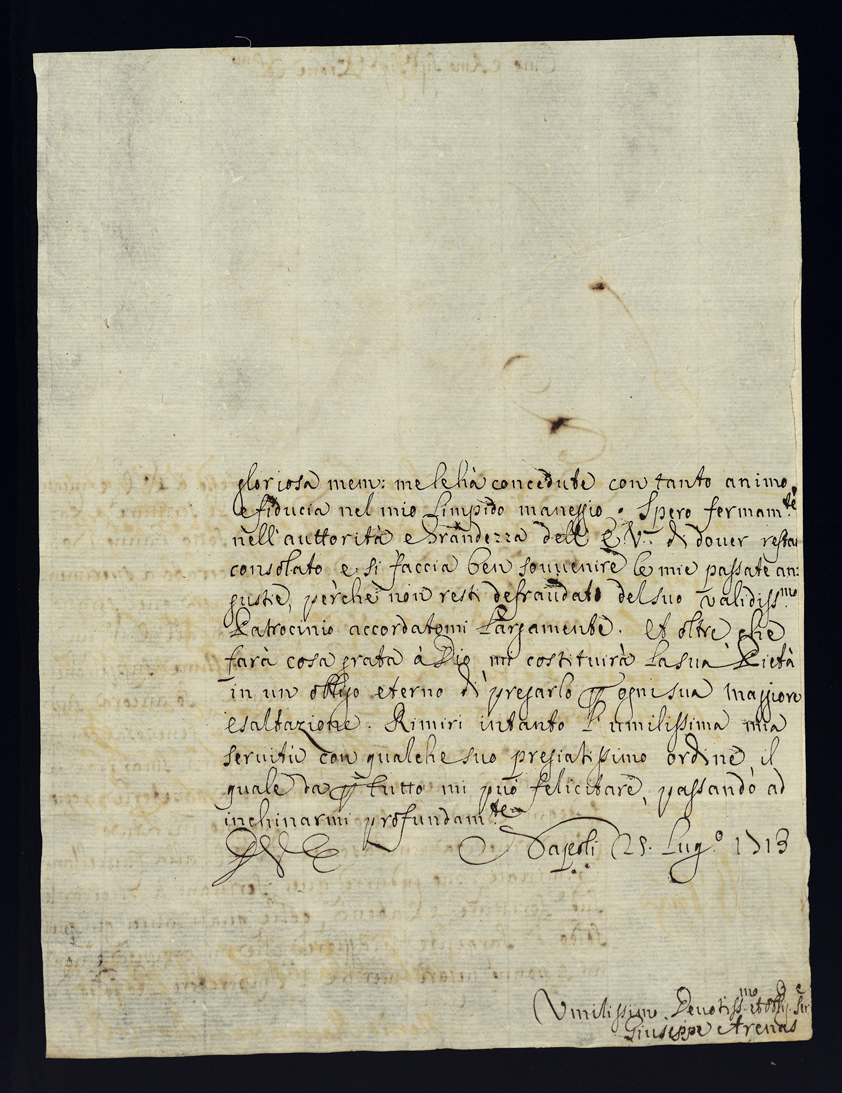 gloriosa mem: me le hà concedute con tanto animo,
e fiducia nel mio limpido maneggio. Spero fermam.te
nell'auttorità e Grandezza dell'E.V. di douer restar
consolato e si faccia ben souuenire le mie passate an:
gustie, perche non resti defraudato del suo validiss.mo
Patrocinio accordatomi largamente. Et oltre che
farà cosa grata à Dio mi costituirà la sua Pietà
in un obligo eterno di pregarlo ogni sua maggiore
esaltazione. Rimiri intanto l'umilissima mia
seruitù con qualche suo pregiatissimo ordine, il
quale da tutto mi può felicitare, passando ad
inchinarmi profundam.te
D V E Napoli 25. Lug.o 1713
Vmilissimo. Deuotiss.mo et Obli. Ser.e
Giuseppe Arenas